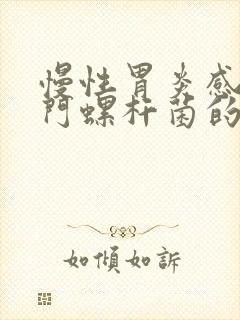 慢性胃炎感
门螺杆菌的
如傾如訴